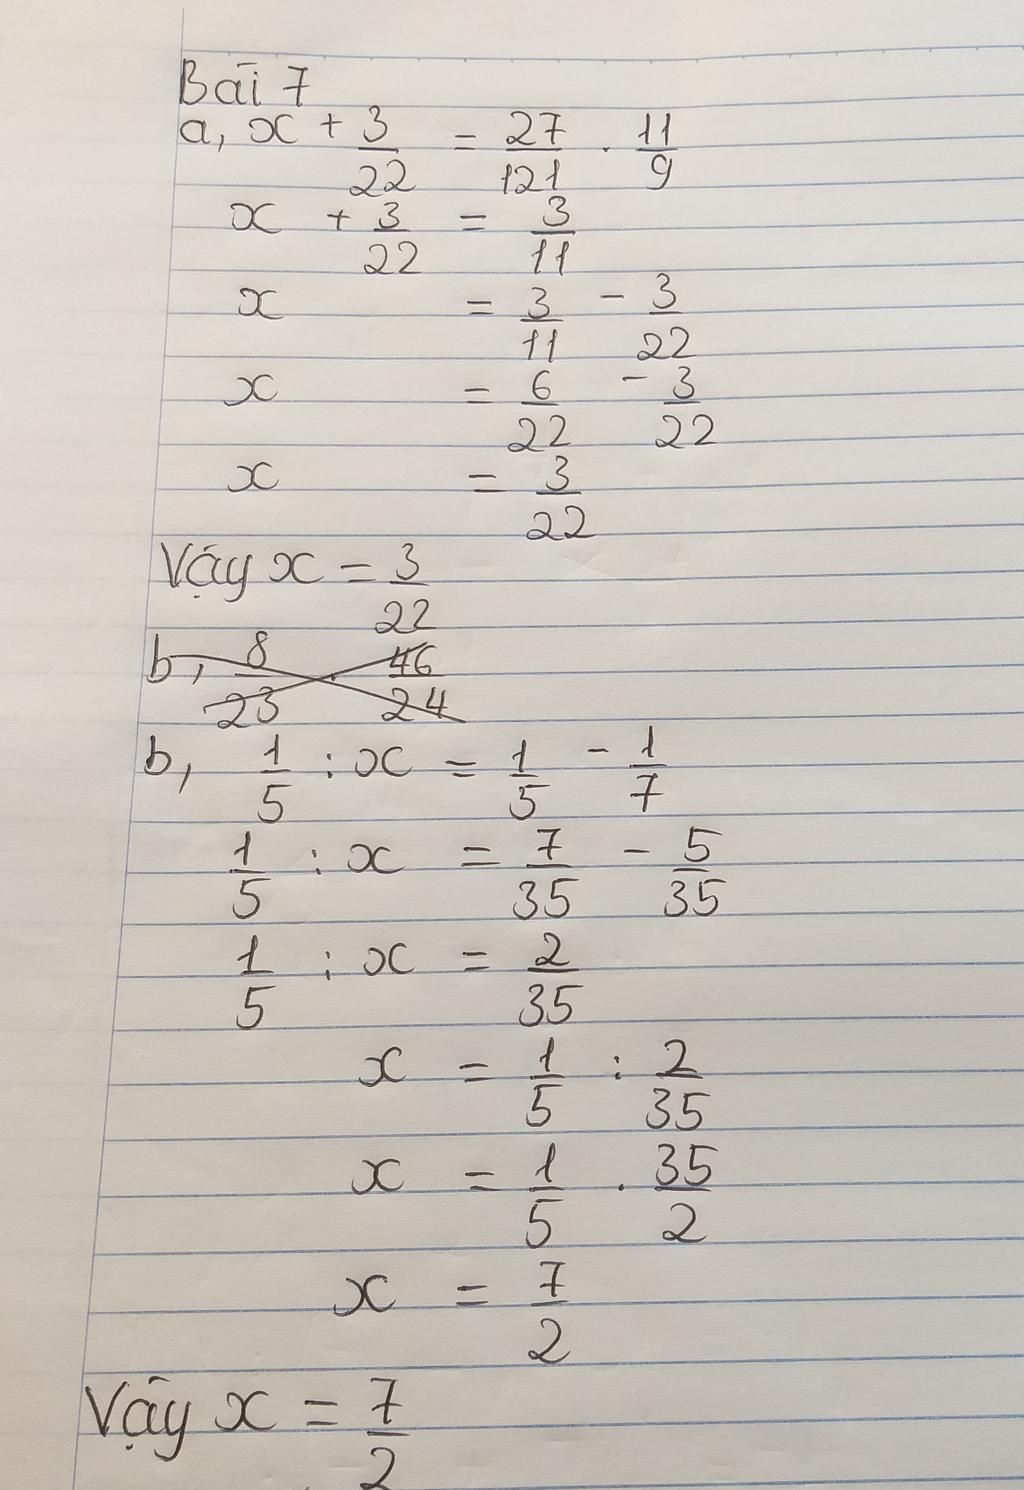 Bài 7
a, x + 3/22 = 27/121 . 11/9
x + 3/22 = 3/11
x = 3/11 - 3/22
x = 6/22 - 3/22
x = 3/22
Vậy x = 3/22
b, 8/23 . 46/24
b, 1/5 : x = 1/5 - 1/7
1/5 : x = 7/35 - 5/35
1/5 : x = 2/35
x = 1/5 : 2/35
x = 1/5 . 35/2
x = 7/2
Vậy x = 7/2